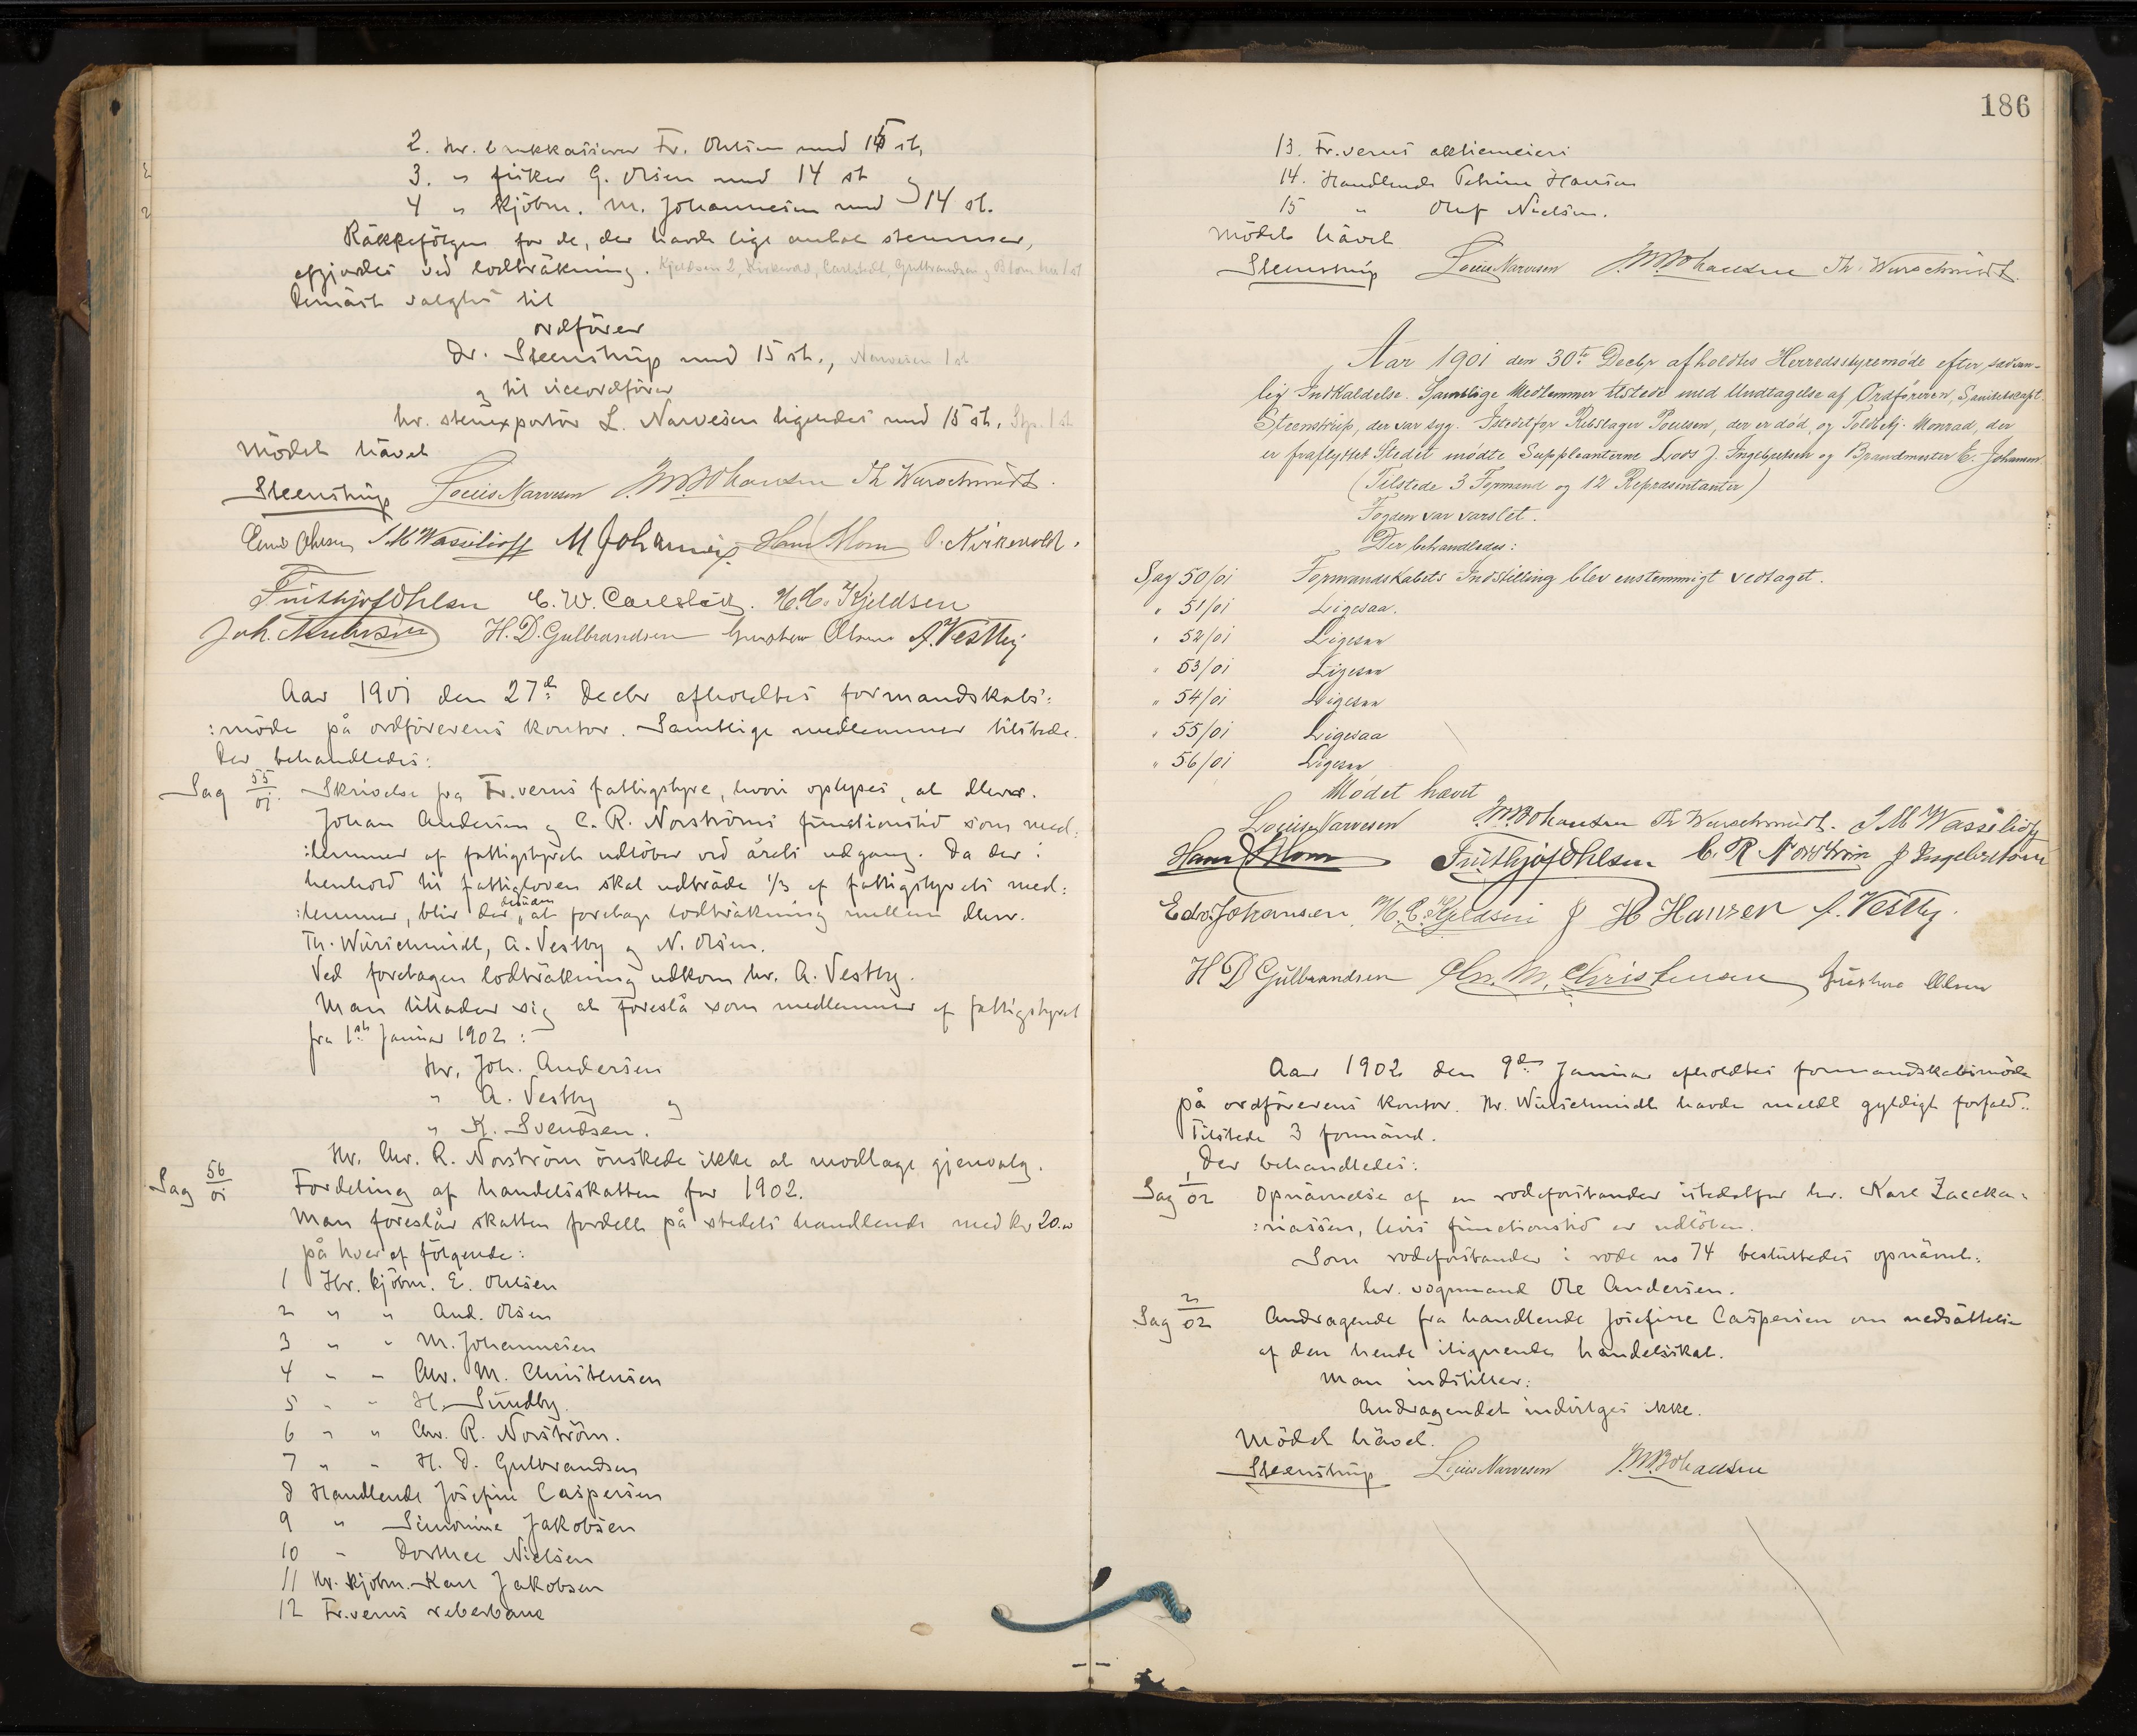 2. hr. bankkasserer Fr. Ohlsen med 15 st,
3. " fisker G. Olsen med 14 st og
4 " kjöbm. M. Johannesen med 14 st.
Räkkefölgen for de, der havde lige antal stemmer,
afgjordes ved lodträkning. Kjeldsen 2, Kirkevold, Carlstedt, Gulbrandsen, Blom hver 1 st
Dernäst valgtes til
ordförer
Dr. Steenstrup med 15 st., Narvesen 1 st
og til viceordförer
hr. stenexportör L. Narvesen ligeledes med 15 st. Stp. 1 st
Mödet hävet
Steenstrup Louis Narvesen Th Wurschmidt.
Emil Ohlsen S M Wassilioff M Johannesen Hans Blom O. Kirkevold.
Frithjof Ohlsen C. W. Carlstedt. N. C. Kjeldsen
Joh. Andersen H. D. Gulbrandsen Gustav Olsen A. Vestby
Aar 1901 den 27de Decbr afholdtes formandskabs:
:möde på ordförerens kontor. Samtlige medlemmer tilstede.
Der behandledes:
Sag 55/01. Skrivelse fra Fr.verns fattigstyre, hvori oplyses, at dherr.
Johan Andersen og C. R. Norströms functionstid som med:
:lemmer af fattigstyret udlöber ved årets udgang. Da der i
henhold til fattigloven skal udträde 1/3 af fattigstyrets med:
:lemmer, blir der desuden at foretage lodträkning mellem dherr.
Th. Würschmidt, A. Vestby og N. Olsen.
Ved foretagen lodträkning udkom hr. A. Vestby.
Man tillader sig at foreslå som medlemmer af fattigstyret
fra 1ste Januar 1902:
Hr. Joh. Andersen
" A. Vestby og
" K. Svendsen.
Hr. Chr. R. Norström önskede ikke at modtage gjenvalg.
Sag 56/01 Fordeling af handelsskatten for 1902.
Man foreslår skatten fordelt på stedets handlende med kr 20.00
på hver af fölgende:
1 Hr. kjöbm. E. Ohlsen
2 " " And. Olsen
3 " " M. Johannesen
4 " " Chr. M. Christensen
5 " " H. Sundby.
6 " " Chr. R. Norström.
7 " " H. D. Gulbrandsen
8 Handlende Josefine Caspersen
9 " Simonine Jakobsen
10 " Dorthee Nielsen
11 Hr. kjöbm. Karl Jakobsen
12 Fr.verns reberbane
186
13. Fr.verns aktiemeieri
14. Handlende Petrine Hansen
15 " Oluf Nielsen.
Mödet hävet
Steenstrup Louis Narvesen Th. Wurschmidt.
Aar 1901 den 30te Decbr afholdtes Herredsstyremøde efter sædvan-
lig Indkaldelse. Samtlige Medlemmer tilstede med Undtagelse af Ordføreren, Sanitetskapt.
Steenstrup, der var syg. Istedetfor Rebslager Poulsen, der er død, og Toldbetj. Monrad, der
er fraflyttet Stedet mødte Suppleanterne Lods J. Ingebretsen og Brandmester E. Johansen.
(Tilstede 3 Formænd og 12 Repræsentanter)
Fogden var varslet.
Der behandledes:
Sag 50/01 Formandskabets Indstilling blev enstemmigt vedtaget.
" 51/01 Ligesaa.
" 52/01 Ligesaa
" 53/01 Ligesaa
" 54/01 Ligesaa
" 55/01 Ligesaa
" 56/01 Ligesaa
Mødet hævet
Louis Narvesen Th Wurschmidt. S M Wassilioff
Hans Blom Frithjof Ohlsen C. R Norström J Ingebretsen
Edv. Johansen. N. C. Kjeldsen J H Hansen A. Vestby.
H D Gulbrandsen Chr. M. Christensen Gustav Olsen
Aar 1902 den 9de Januar afholdtes formandskabsmöde
på ordförerens kontor. Hr. Würschmidt havde meldt gyldigt forfald.
Tilstede 3 formänd.
Der behandledes:
Sag 1/02 Opnävnelse af en rodeforstander istedetfor hr. Karl Zacka:
:riassen, hvis functionstid er udlöben.
Som rodeforstander i rode no 74 besluttedes opnävnt:
hr. vognmand Ole Andersen.
Sag 2/02 Andragende fra handlende Josefine Caspersen om nedsättelse
af den hende ilignende handelsskat.
Man indstiller:
Andragendet indvilges ikke.
Mödet hävet.
Steenstrup Louis Narvesen